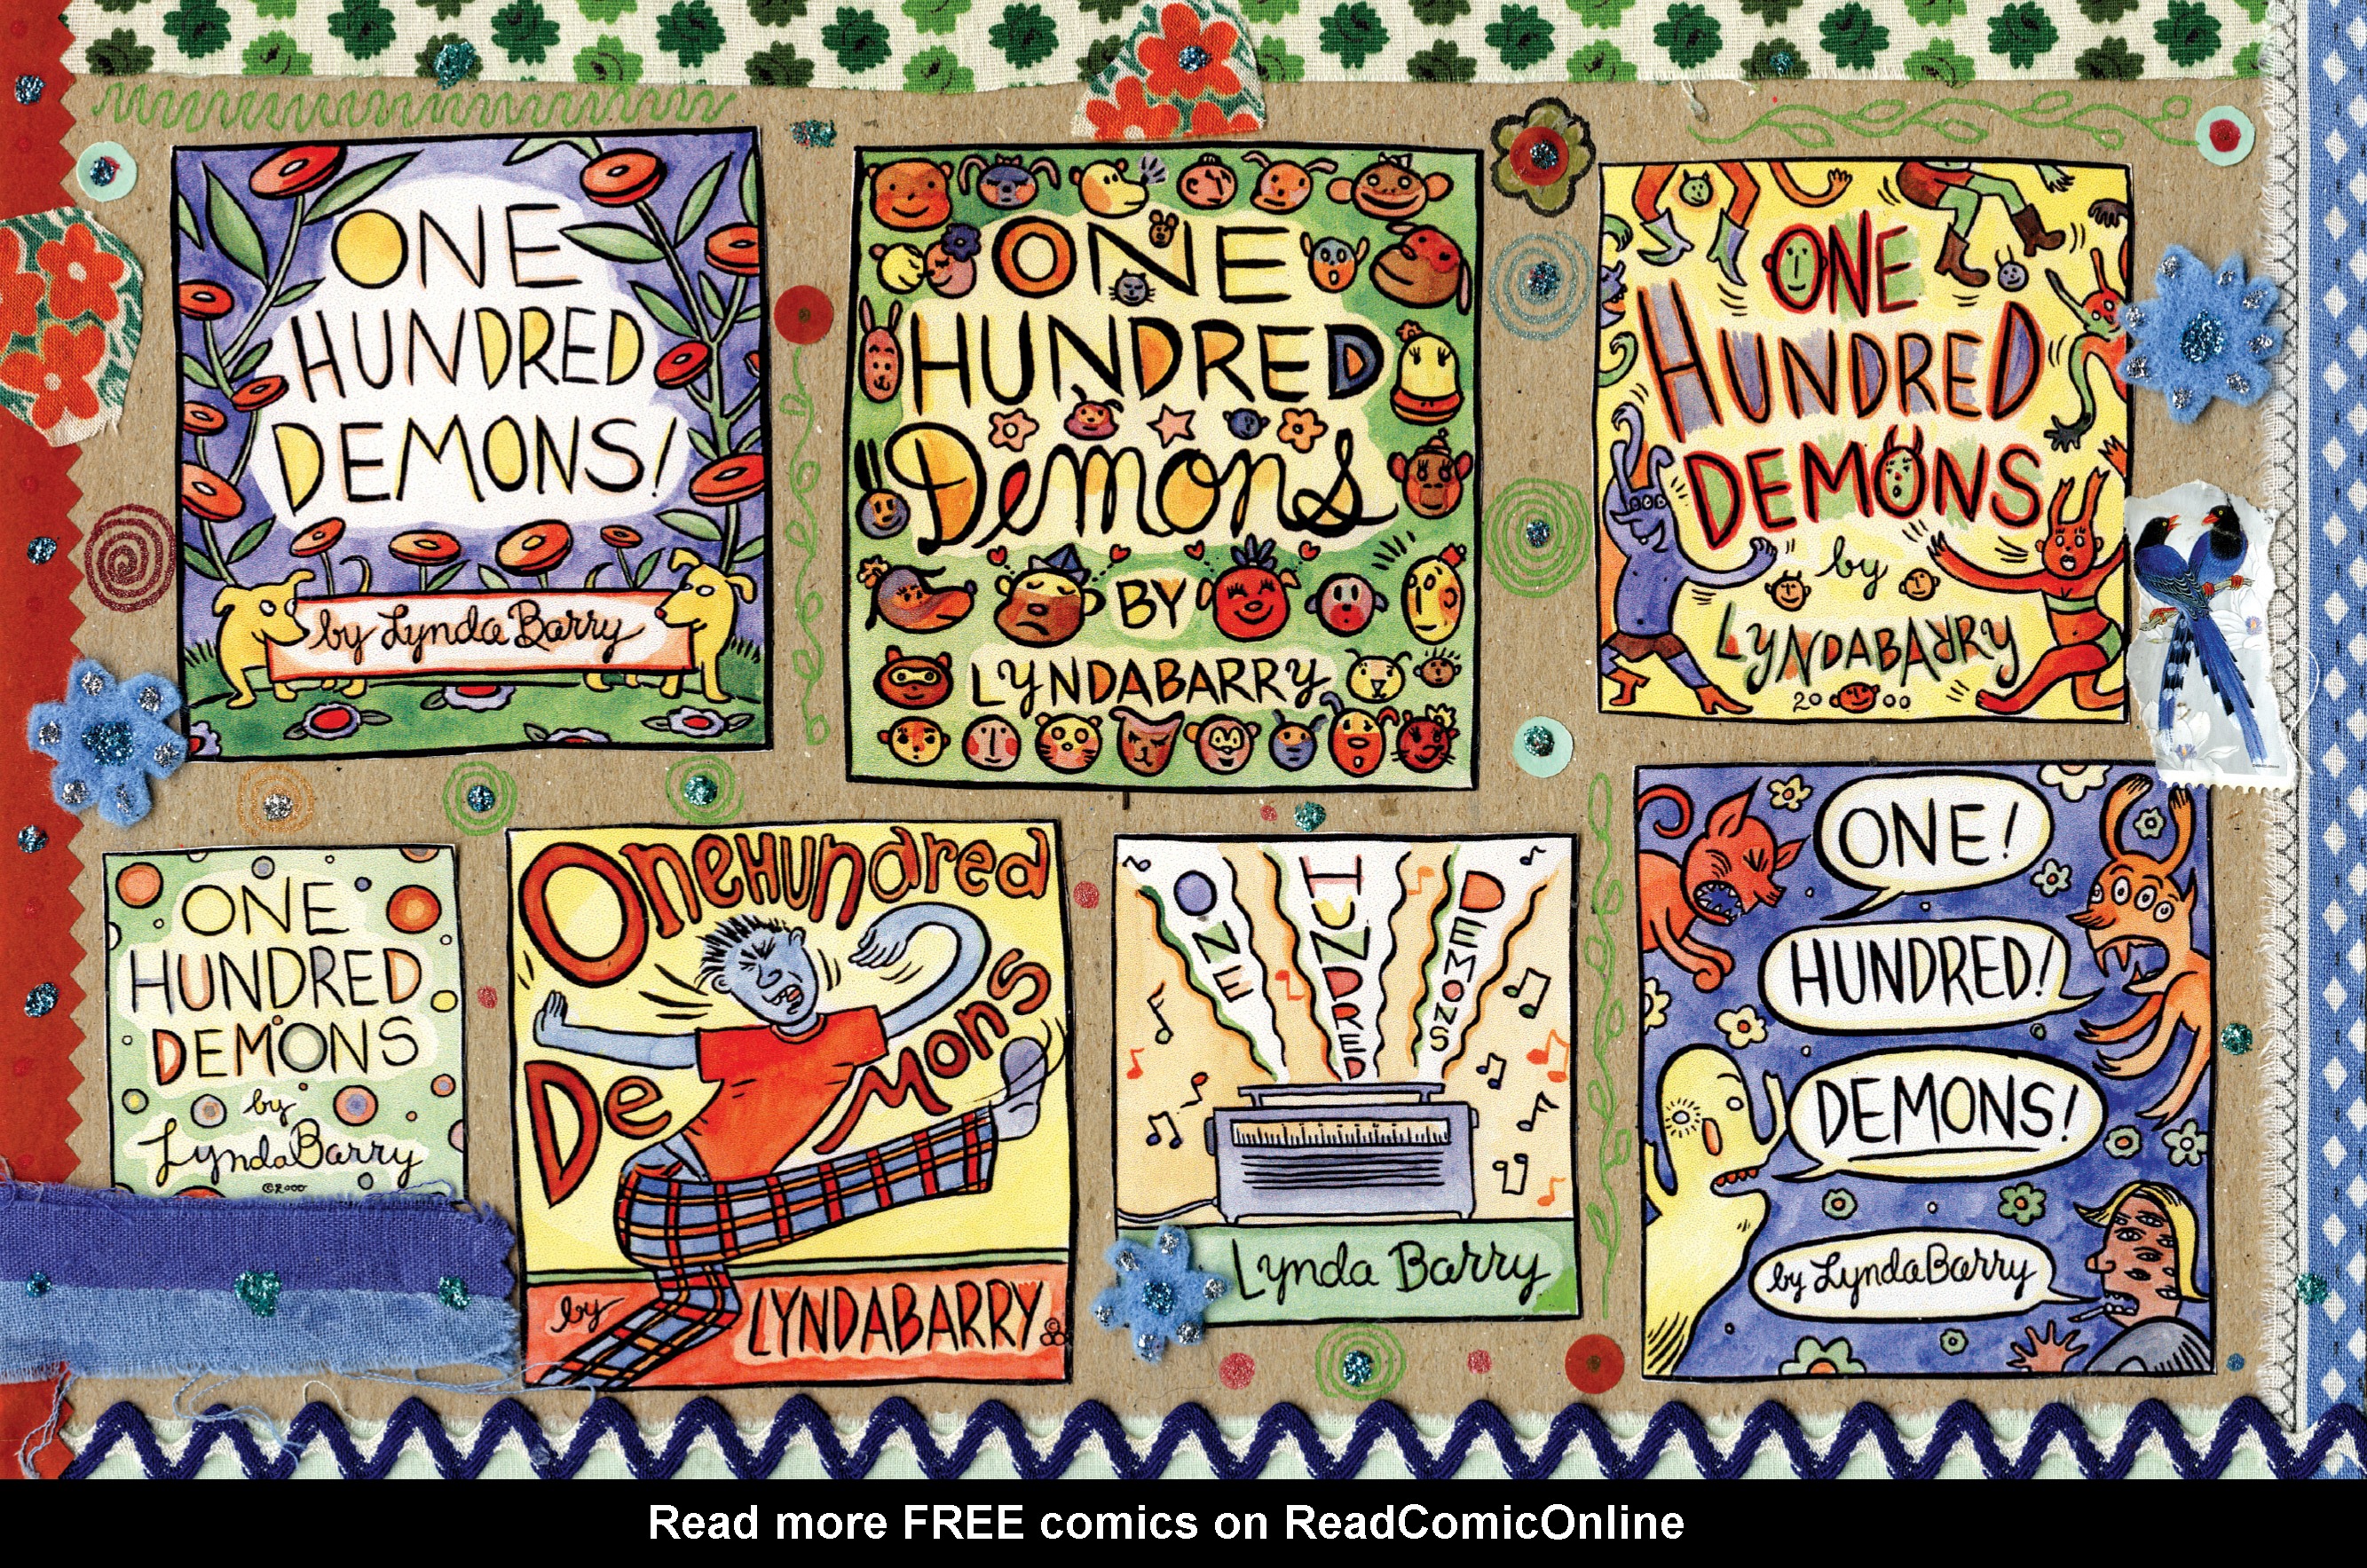 ONE
HUNDRED
DEMONS!
by Lynda Barry
ONE
HUNDRED
Demons
BY
LYNDABARRY
ONE
HUNDRED
DEMONS
by
LYNDABARRY
20 00
ONE
HUNDRED
DEMONS
by
LyndaBarry
©2000
OneHundred
DeMons
by LYNDABARRY
ONE
HUNDRED
DEMONS
Lynda Barry
ONE!
HUNDRED!
DEMONS!
by LyndaBarry
Read more FREE comics on ReadComicOnline